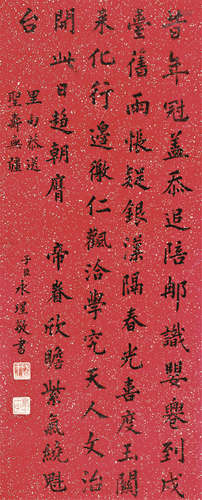 昔年冠蓋忝追陪郍識嬰罍到戍
臺舊雨悵疑銀漢隔春光喜度玉關
來化行邊徼仁觀洽學究天人文治
開此日趨朝膺 帝眷欣瞻紫氣繞魁
台
里句恭送
聖 無疆
子臣永瑆敬書